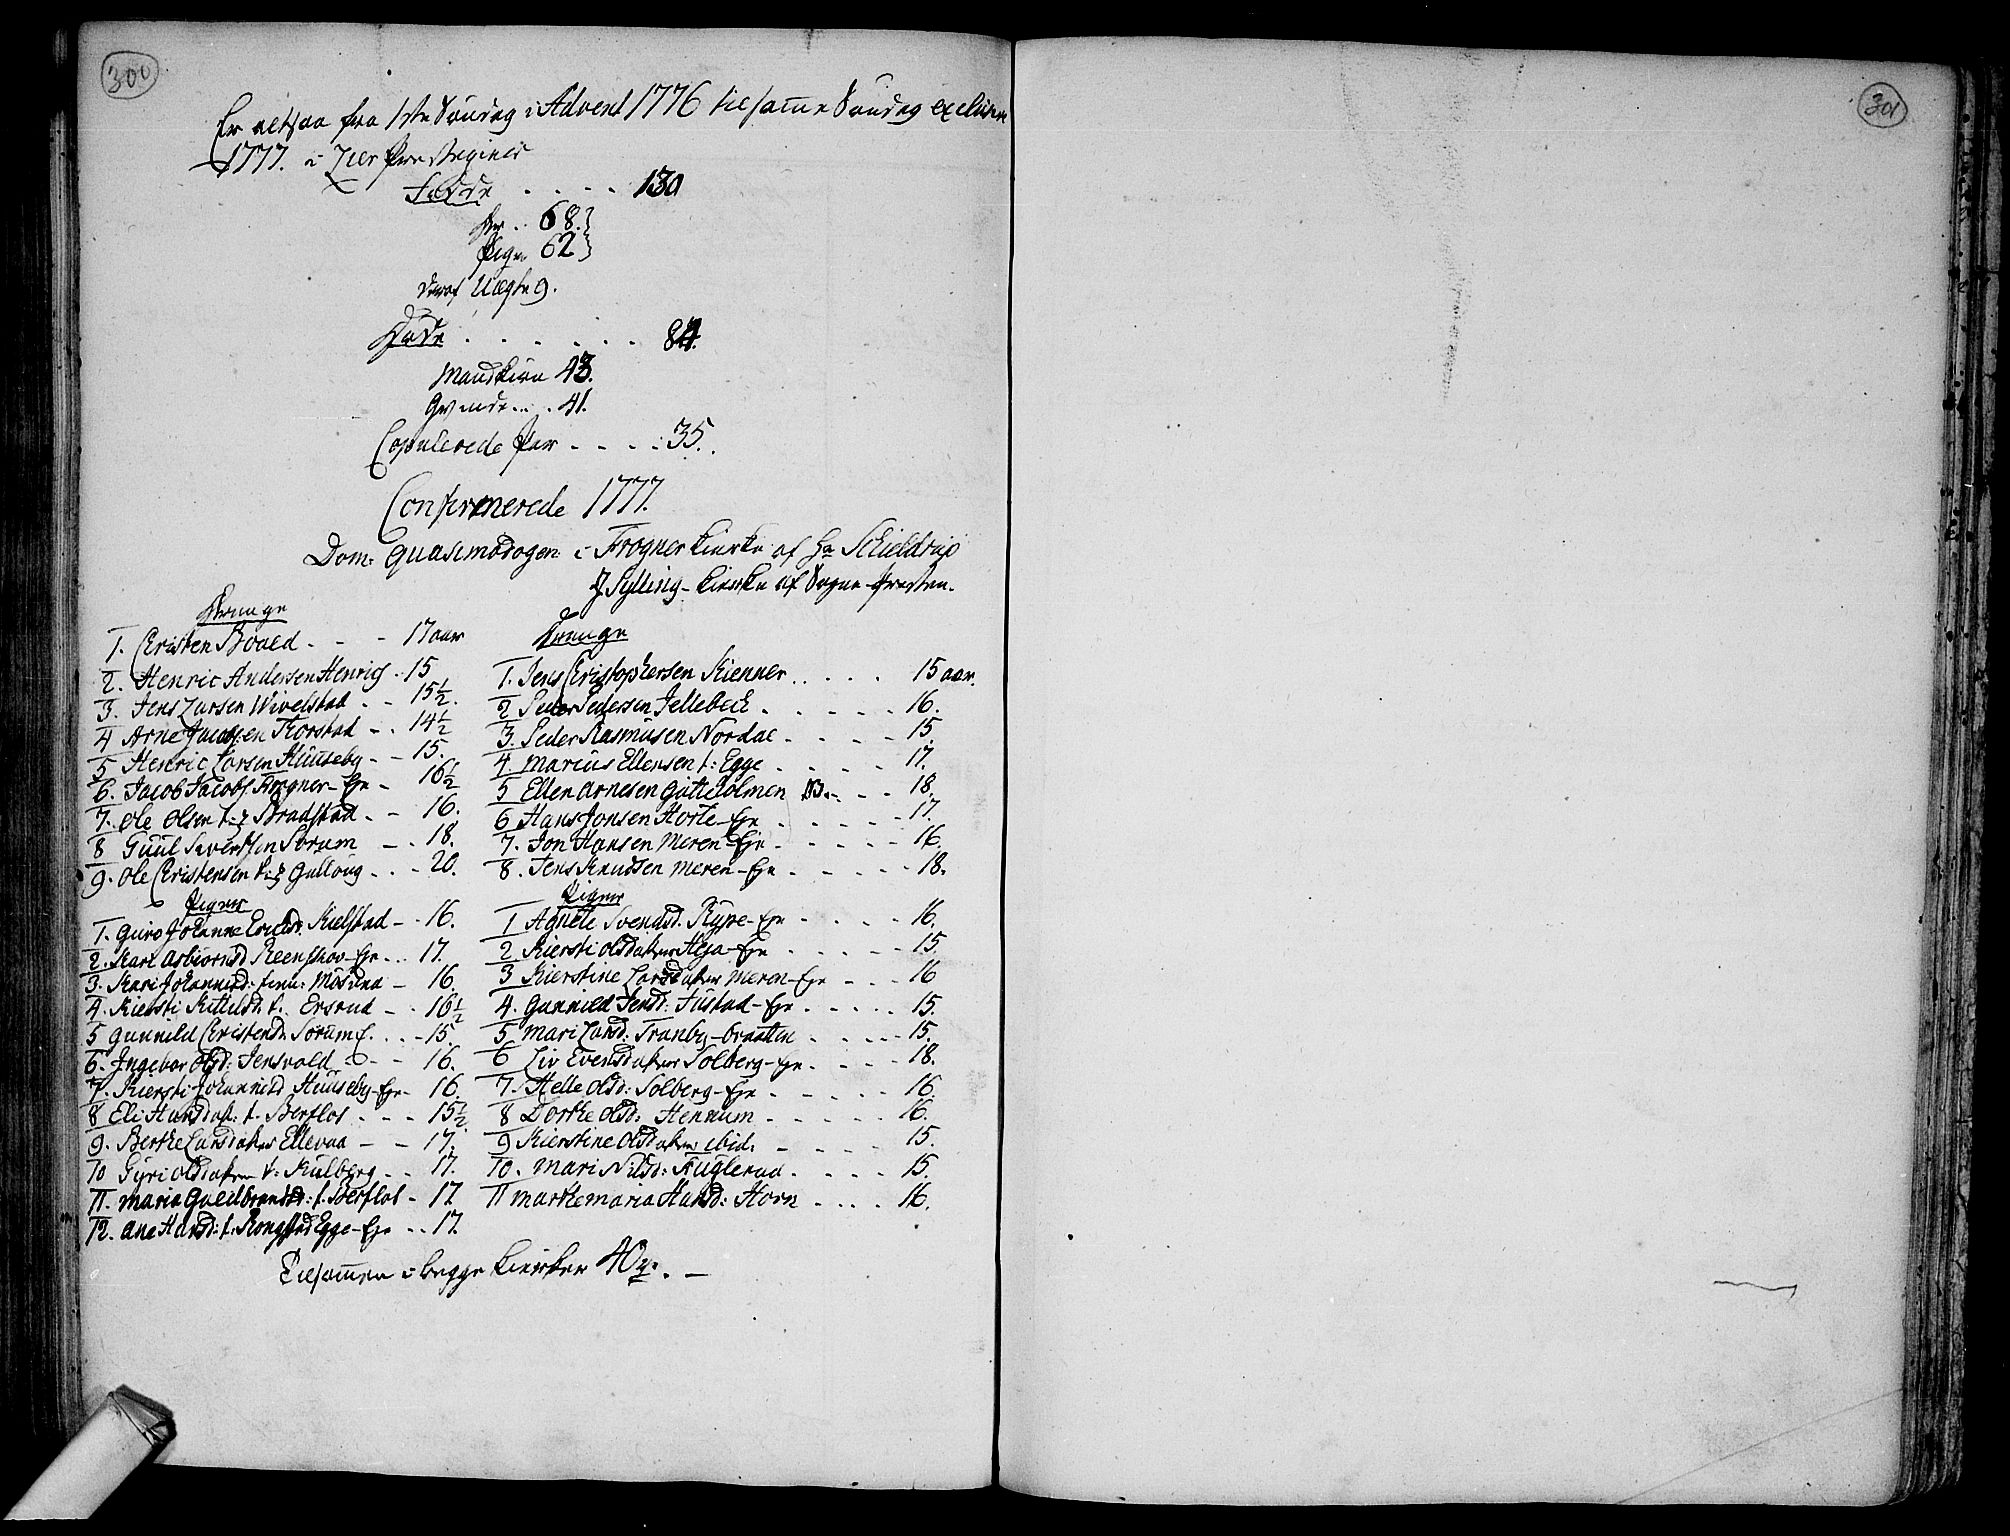 300
Er altsaa fra 1ste Søndag i Advent 1776 til samme Søndag exclusive
1777. i Lier Præstegield
Fødde . . . . 130
Dr .. 68.
Pigr 62
deraf Uægte 9.
Døde . . . . . . 84.
Mandkiøn 43.
Qvinde .. . 41.
Copulerede Par - - - : 35.
Confirmerede 1777.
Dom: quasimodogen: i Frogner Kierke af Hr Schieldrup
I Sylling-Kierke af Sogne-Præsten.
Drenge
1. Christen Boued . - - 17 aar
2. Henric Andersen Henrigs . 15
3. Jens Larsen Wivelstad . - 15 1/2.
4 Arne Jacobsen Thorstad - . 14 1/2
5 Henric Larsen Huuseby - - 15.
6. Jacob Jacobs. Frogner-Eje - 16 1/2
7. Ole Olsen t: Bradstad . - 16.
8 Guul Siversen Sørum - . 18.
9. Ole Christensen t: Gulloug . . - 20.
Piger
1. Guro Johanne Ericsd. Kielstad - . 16.
2. Kari Asbiørnsd Reenskov-Eje . . 17.
3. Kari Johannesd: Møsund - 16.
4. Kiersti Kittilsd: t: Ersrud - . 16 1/2
5 Gunnild Christensd. Sørum E. . . - 15.
6. Ingebor Olsd: Jensvold - - 16.
7. Kiersti Johannesd Huuseby-Eje - 16.
8 Eli Hansdat. t. Berflot . - - 15 1/2
9. Berthe Larsdatter Ellevaa - - 17.
10 Gyri Olsdatter t: Kulberg . - 17.
11. Maria Guldbrandsd: t. Berflot - 17
12. Ane Hansd: t. Kongstad Egge-Eje . . 17.
Drenge
1. Jens Christophersen Kienner . . . . . 15 aar.
2 Peder Pedersen Jellebeck . - - - - 16.
3. Peder Rasmusen Nordal . - - - - 15.
4. Marius Ellensen t: Egge . - - - 17.
5 Ellen Arnesen Gåtteholmen - - 18.
6 Hans Jonsen Horte-Eje . - - - - 17.
7. Jon Hansen Meren-Eje . - - - - 16.
8. Jens Knudsen Meren-Eje . - - - - 18.
Piger
1 Agnete Svendsd. Rype-Eje - - - - 16.
2 Kiersti Olsdatter Heja-Eje . - - - - 15.
3 Kierstine Larsdatter Meren-Eje . - - 16
4. Gunnild Jensd: Justad-Eje . - - - - 15.
5 Mari Larsd: Tranby-braatten . - - - - 15.
6 Liv Evensdatter Solberg-Eje . - - 18.
7. Helle Olsd: Solberg-Eje . - - - - 16.
8 Dorthe Olsd: Hennum - - - - - 16.
9 Kierstine Olsdatter ibid: - - - - 15.
10. Mari Nilsd: Kuglerud . - - - 15.
11 Marthe Maria Hansd: Horn . . . . 16.
Tilsammen i begge Kierker 40.
301